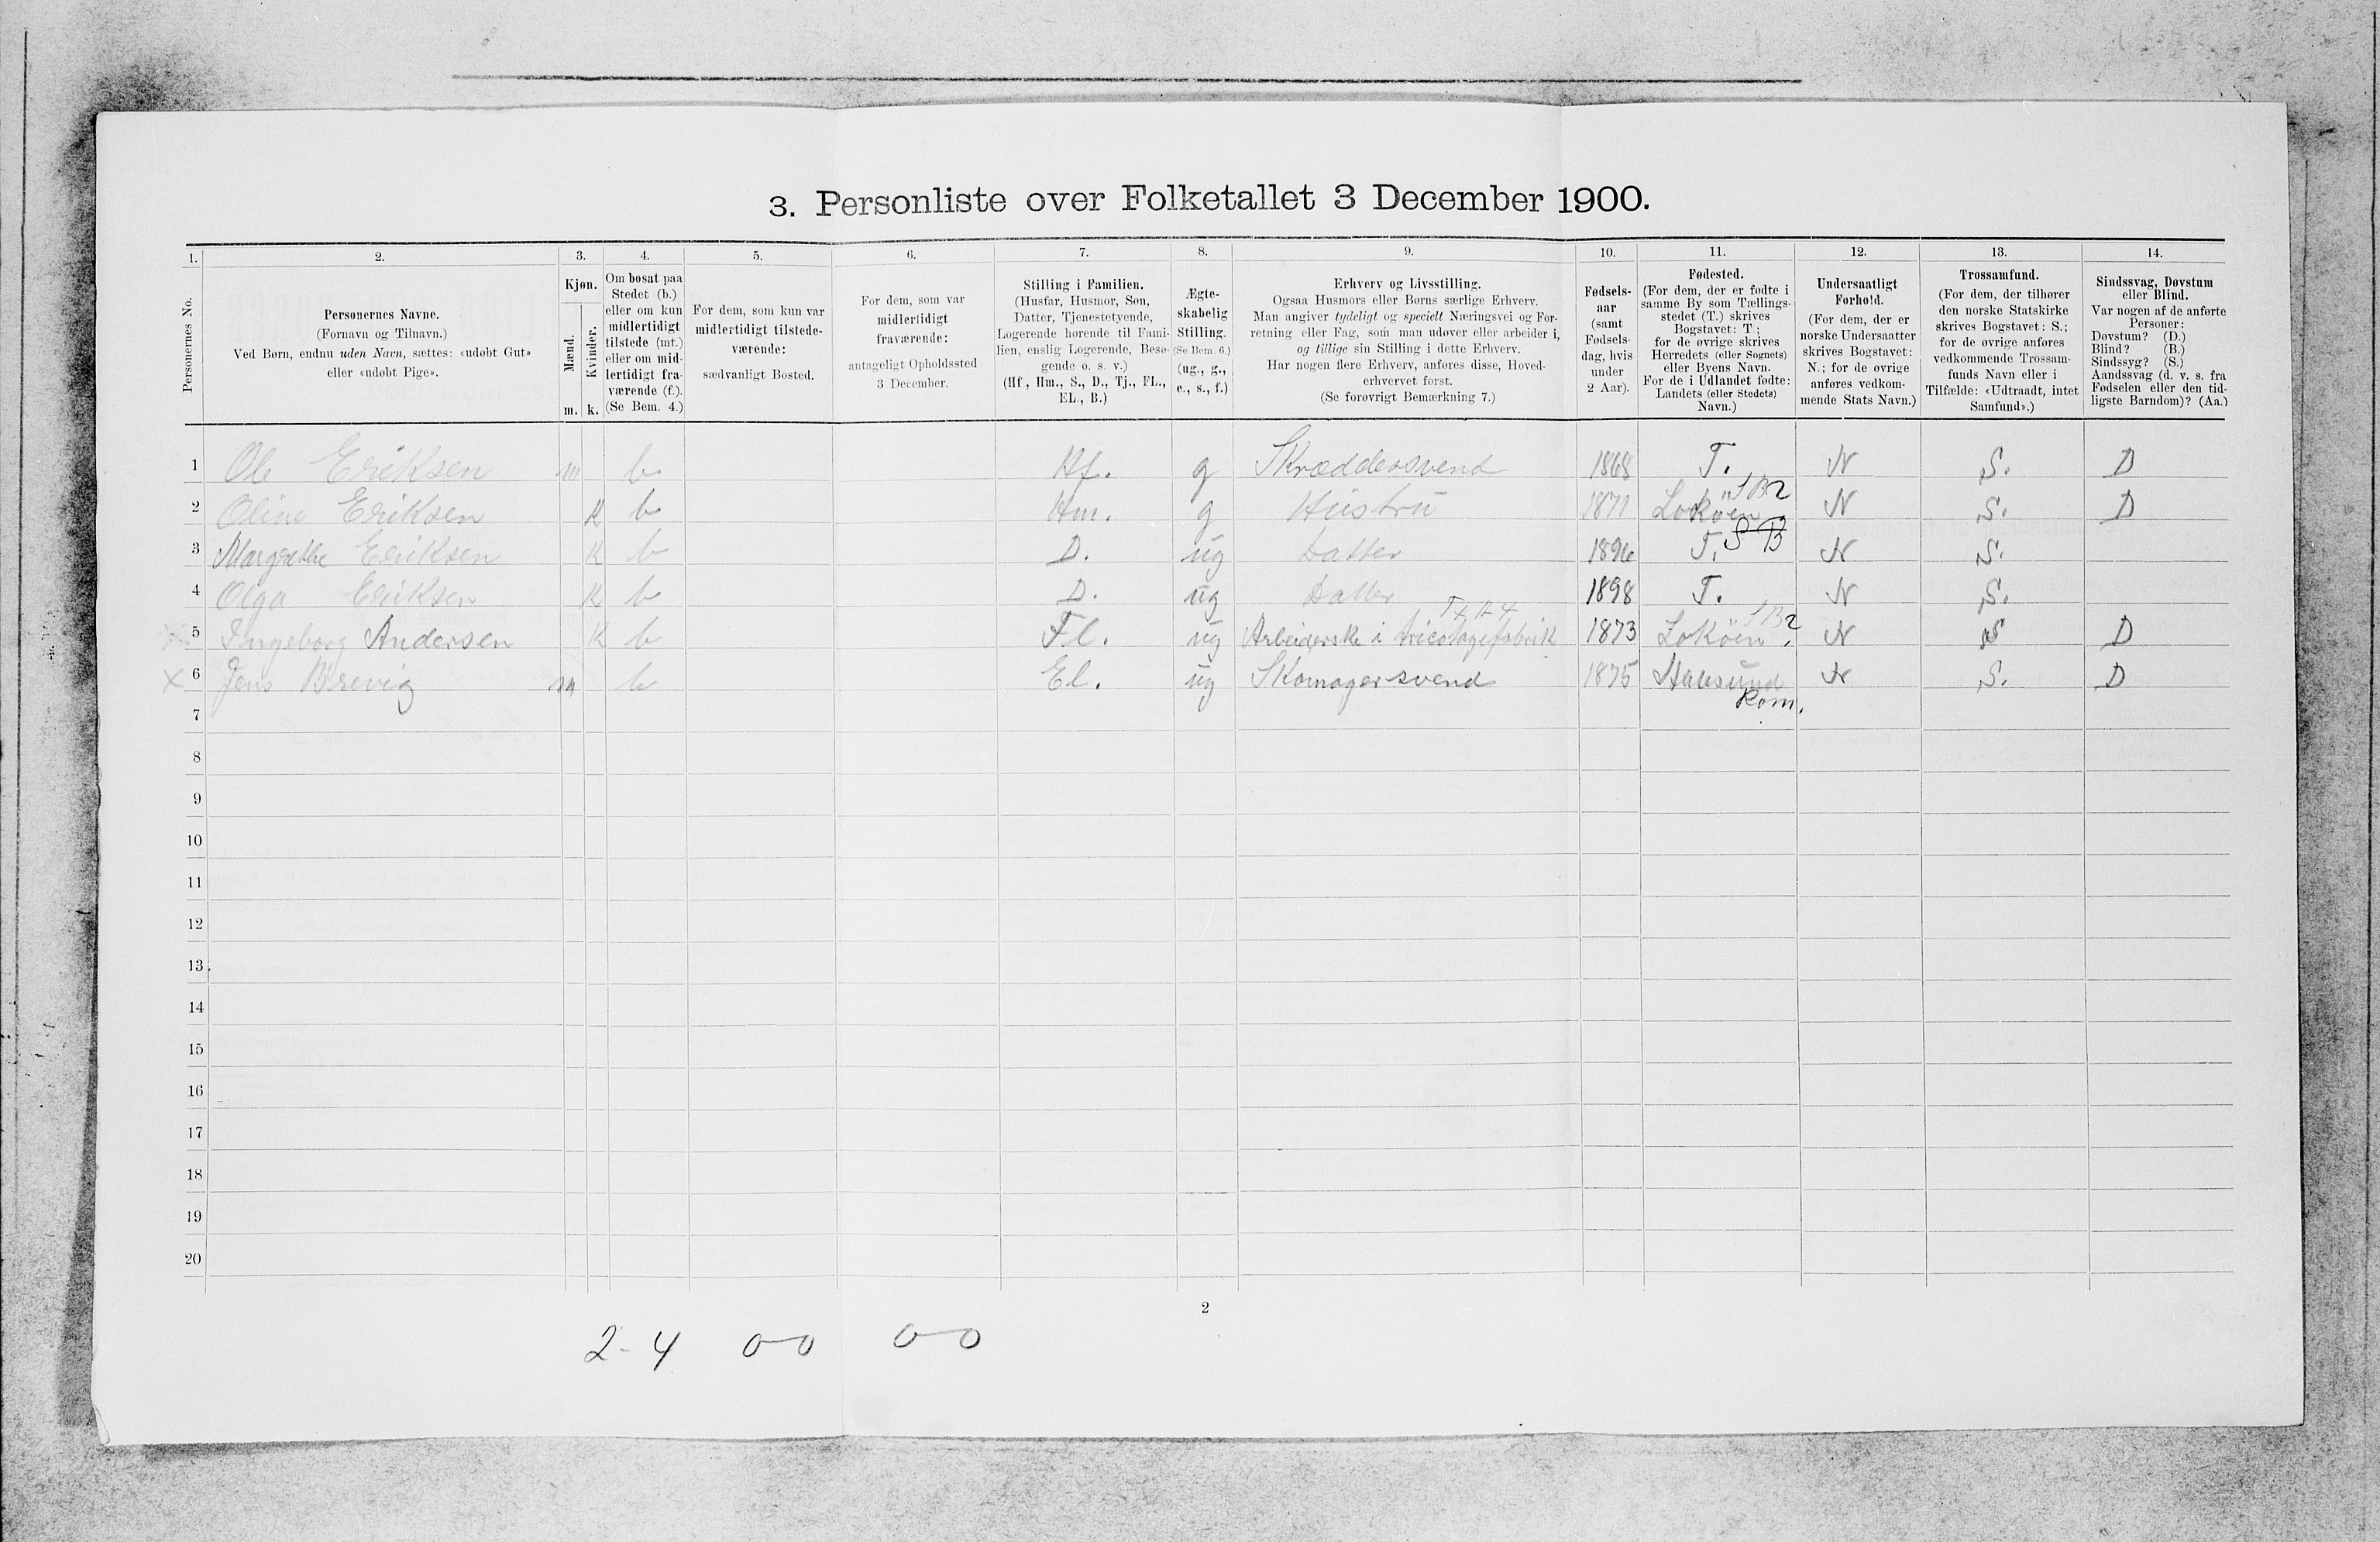 3. Personliste over Folketallet 3 December 1900.
1. 2. 3. 4. 5. 6. 7. 8. 9. 10. 11. 12. 13. 14.
Personernes No.
Personernes Navne.
(Fornavn og Tilnavn.)
Ved Børn, endnu uden Navn, sættes: «udøbt Gut»
eller «udøbt Pige».
Kjøn.
Mænd.
Kvinder.
m. k.
Om bosat paa
Stedet (b.)
eller om kun
midlertidigt
tilstede (mt.)
eller om mid-
lertidigt fra-
værende (f.).
(Se Bem. 4.)
For dem, som kun var
midlertidigt tilstede-
værende:
sædvanligt Bosted.
For dem, som var
midlertidigt
fraværende:
antageligt Opholdssted
3 December.
Stilling i Familien.
(Husfar, Husmor, Søn,
Datter, Tjenestetyende,
Logerende hørende til Fami-
lien, enslig Logerende, Besø-
gende o. s. v.)
(Hf., Hm., S., D., Tj., FL.,
EL., B.)
Ægte-
skabelig
Stilling.
(Se Bem. 6.)
(ug., g.,
e., s., f.)
Erhverv og Livsstilling.
Ogsaa Husmors eller Børns særlige Erhverv.
Man angiver tydeligt og specielt Næringsvei og For-
retning eller Fag, som man udøver eller arbeider i,
og tillige sin Stilling i dette Erhverv.
Har nogen flere Erhverv, anføres disse, Hoved-
erhvervet først.
(Se forøvrigt Bemærkning 7.)
Fødsels-
aar
(samt
Fødsels-
dag, hvis
under
2 Aar).
Fødested.
(For dem, der er fødte i
samme By som Tællings-
stedet (T.) skrives
Bogstavet: T.;
for de øvrige skrives
Herredets (eller Sognets)
eller Byens Navn.
For de i Udlandet fødte:
Landets (eller Stedets)
Navn.)
Undersaatligt
Forhold.
(For dem, der er
norske Undersaatter
skrives Bogstavet:
N.; for de øvrige
anføres vedkom-
mende Stats Navn.)
Trossamfund.
(For dem, der tilhører
den norske Statskirke
skrives Bogstavet: S.;
for de øvrige anføres
vedkommende Trossam-
funds Navn eller i
Tilfælde: «Udtraadt, intet
Samfund».)
Sindssvag, Døvstum
eller Blind.
Var nogen af de anførte
Personer:
Døvstum? (D.)
Blind? (B.)
Sindssyg? (S.)
Aandssvag (d. v. s. fra
Fødselen eller den tid-
ligste Barndom)? (Aa.)
1 Ole Eriksen m b. Hf. g Skræddersvend 1868 T. N S. D
2 Oline Eriksen K b Hm. g Hustru 1871 Loköen N S. D
3 Margrethe Eriksen K b D. ug Datter 1896 T. N S.
4 Olga Eriksen K b D. ug Datter 1898 T. N S.
5 Ingeborg Andersen K b Fl. ug Arbeiderske i tricotagefabrik 1873 Loköen. N S D
x 6 Jens Brevig m b El. ug Skomagersvend 1875 N S. D
Rom.
7
8
9
10
11
12
13
14
15
16
17
18
19
20
2
2-4 0-0 0-0